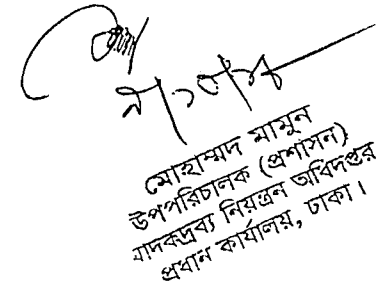 মোহাম্মদ মামুন
উপপরিচালক (প্রশাসন)
মাদকদ্রব্য নিয়ন্ত্রন অধিদপ্তর
প্রধান কার্যালয়, ঢাকা।